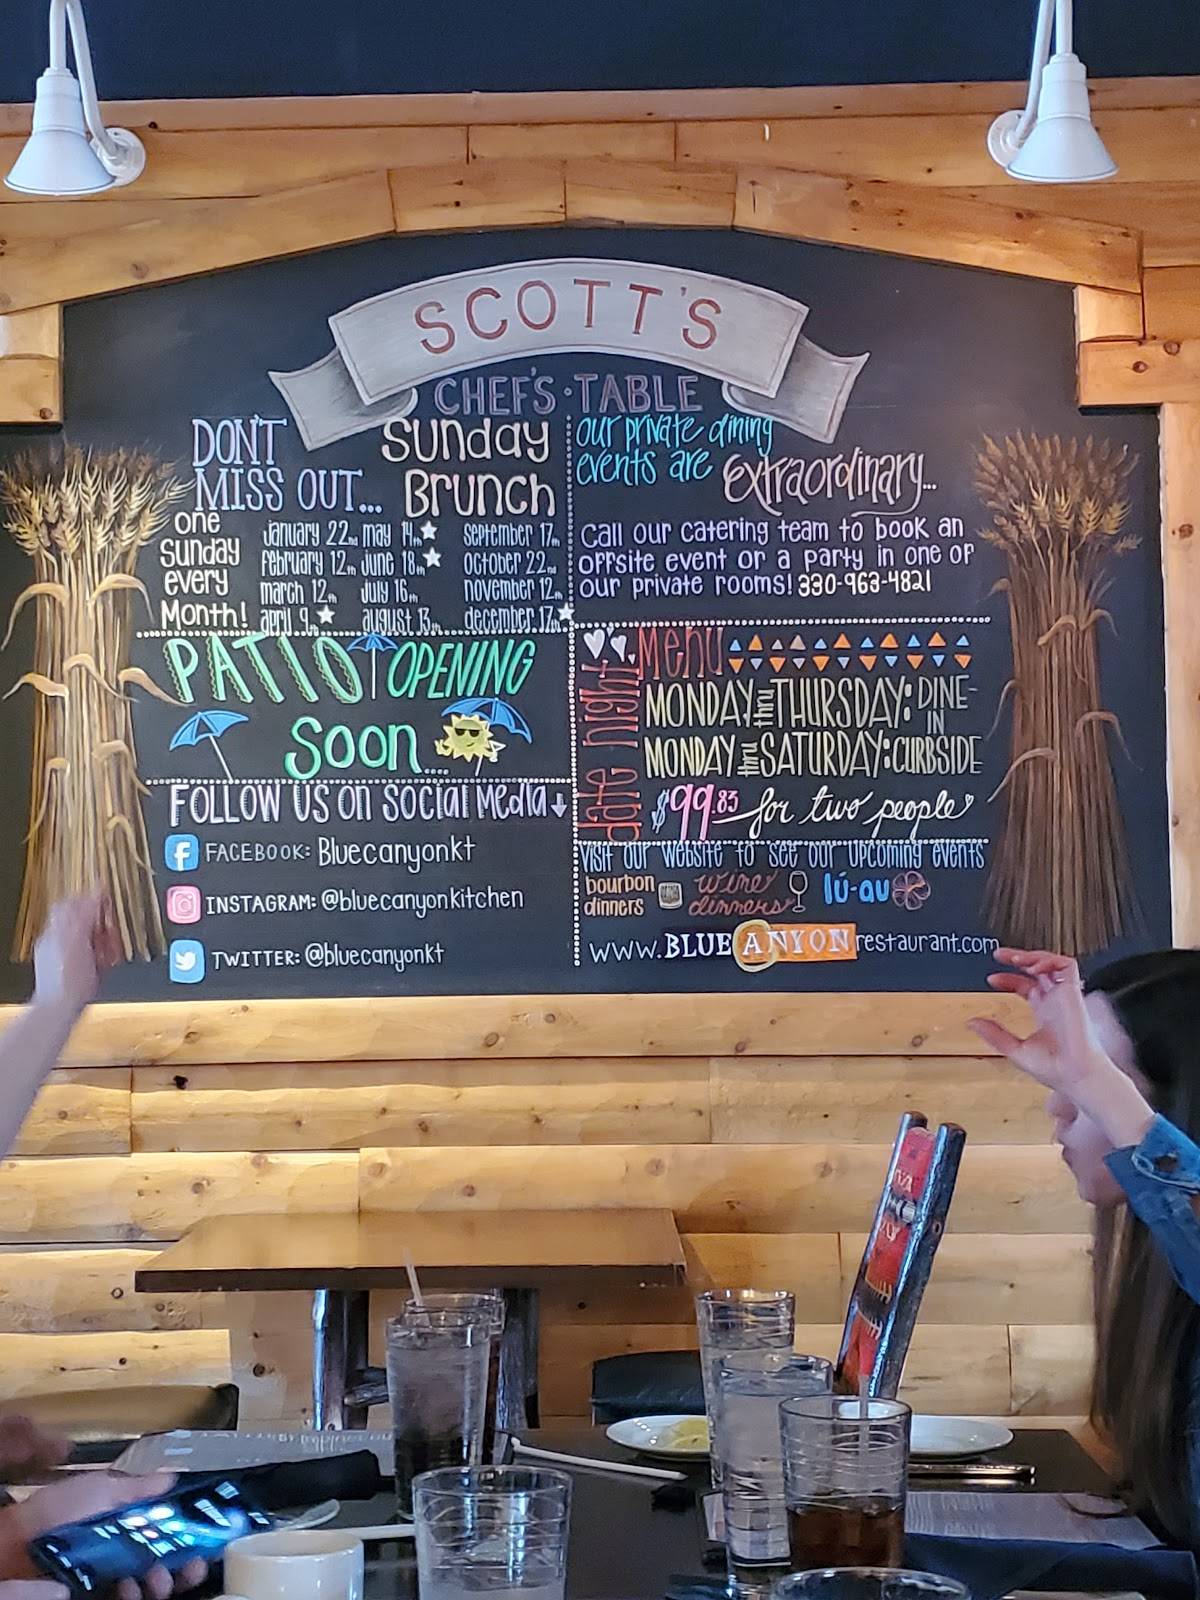 SCOTT'S
CHEF'S · TABLE
DON'T
MISS OUT...
Sunday
Brunch
one
Sunday
every
Month!
January 22nd may 14th September 17th
February 12th June 18th October 22nd
march 12th July 16th november 12th
april 9th august 13th december 17th
our private dining
events are extraordinary...
Call our catering team to book an
offsite event or a party in one of
our private rooms! 330-963-4821
PATIO OPENING
Soon....
date night Menu
MONDAY thru THURSDAY: DINE-
IN
MONDAY thru SATURDAY: CURBSIDE
$99.83 for two people
FOLLOW US on Social Media
FACEBOOK: Bluecanyonkt
INSTAGRAM: @bluecanyonkitchen
TWITTER: @bluecanyonkt
Visit our website to see our upcoming events
bourbon
dinners
wine
dinners
lú-au
www.BLUECANYONrestaurant.com